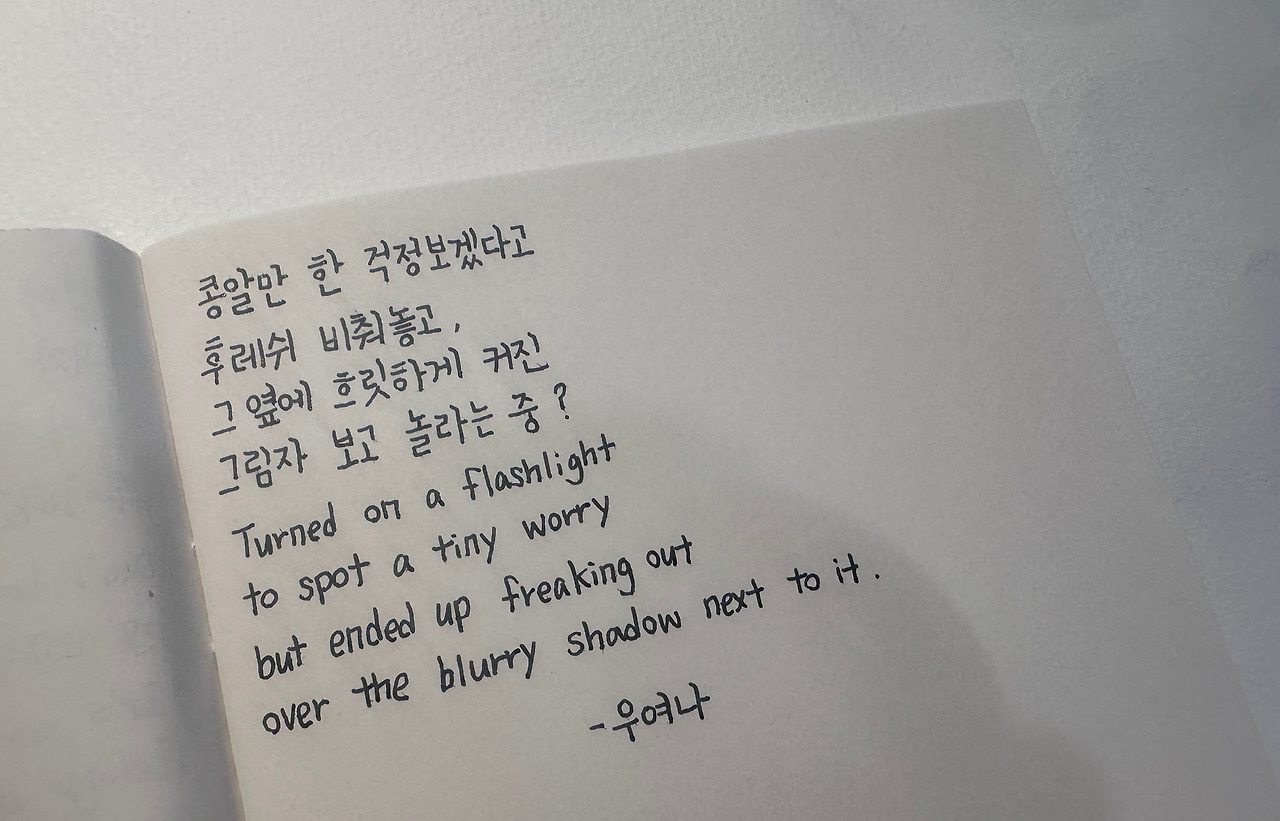 콩알만 한 걱정보겠다고
후레쉬 비춰놓고,
그 옆에 흐릿하게 커진
그림자 보고 놀라는 중?
Turned on a flashlight
to spot a tiny worry
but ended up freaking out
over the blurry shadow next to it.
-우여나